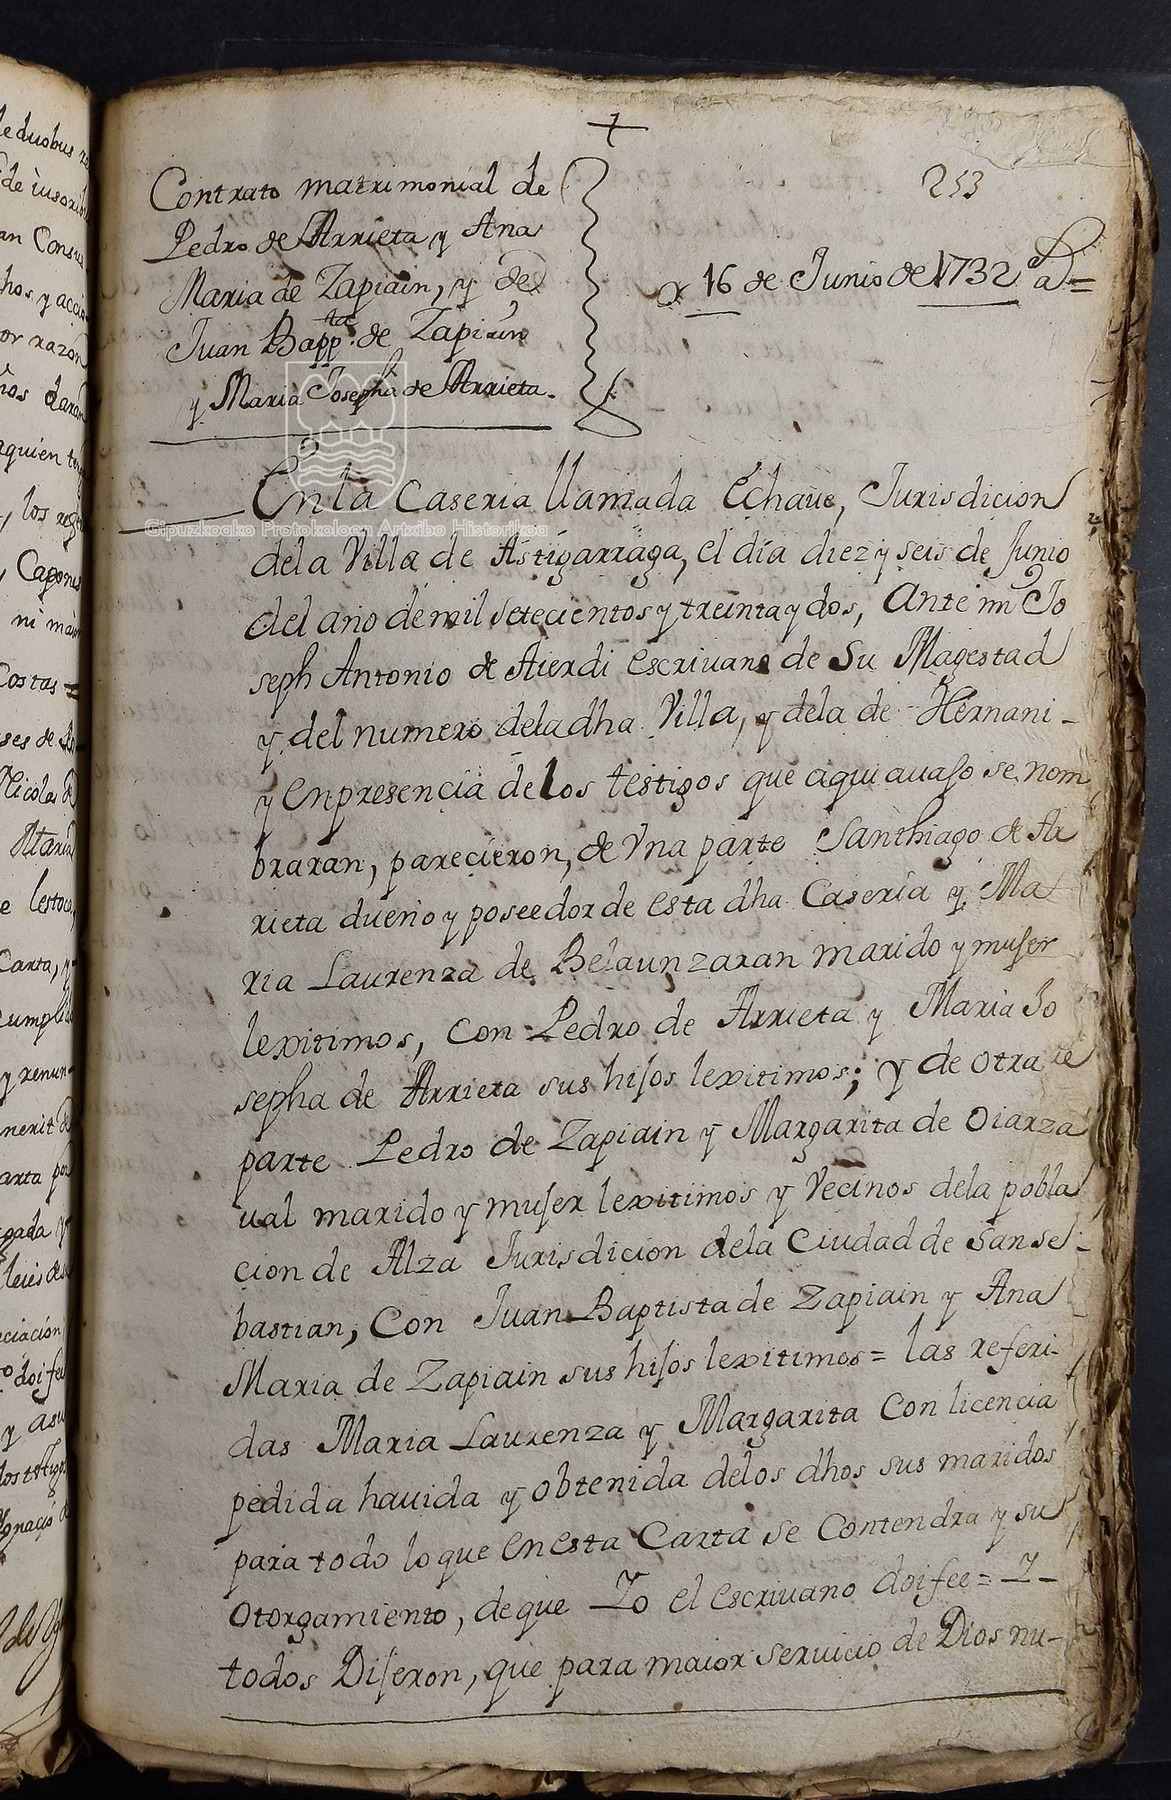 +
253
Contrato matrimonial de
Pedro de Arrieta y Ana
Maria de Zapiain, y de
Juan Bapp.ta de Zapiain
y Maria Josepha de Arrieta.
16 de Junio de 1732 a=
En la Caseria llamada Echaue, Jurisdicion
dela Villa de Astigarraga, el día diez y seis de Junio
del año de mil setecientos y treinta y dos, Ante mi Jo
seph Antonio de Aierdi escriuano de Su Magestad
y del numero dela dha Villa, y dela de Hernani-
y en presencia de los testigos que aqui auajo se nom
braran, parecieron, de Vna parte Santhiago de Ar
rieta dueño y poseedor de esta dha Caseria y Ma
ria Laurenza de Belaunzaran marido y mujer
lexitimos, con Pedro de Arrieta y Maria Jo
sepha de Arrieta sus hijos lexitimos; y de otra
parte Pedro de Zapiain y Margarita de Oiarza
ual marido y mujer lexitimos y Vecinos dela pobla
cion de Alza Jurisdicion dela Ciudad de San se-
bastian, Con Juan Baptista de Zapiain y Ana
Maria de Zapiain sus hijos lexitimos= las referi-
das Maria Laurenza y Margarita Con licencia
pedida hauida y obtenida delos dhos sus maridos
para todo lo que en esta Carta se Contendra y su
otorgamiento, de que Yo el escriuano doi fee= Y-
todos Dijeron, que para maior seruicio de Dios nu-
Gipuzkoako Protokoloen Artxibo Historikoa